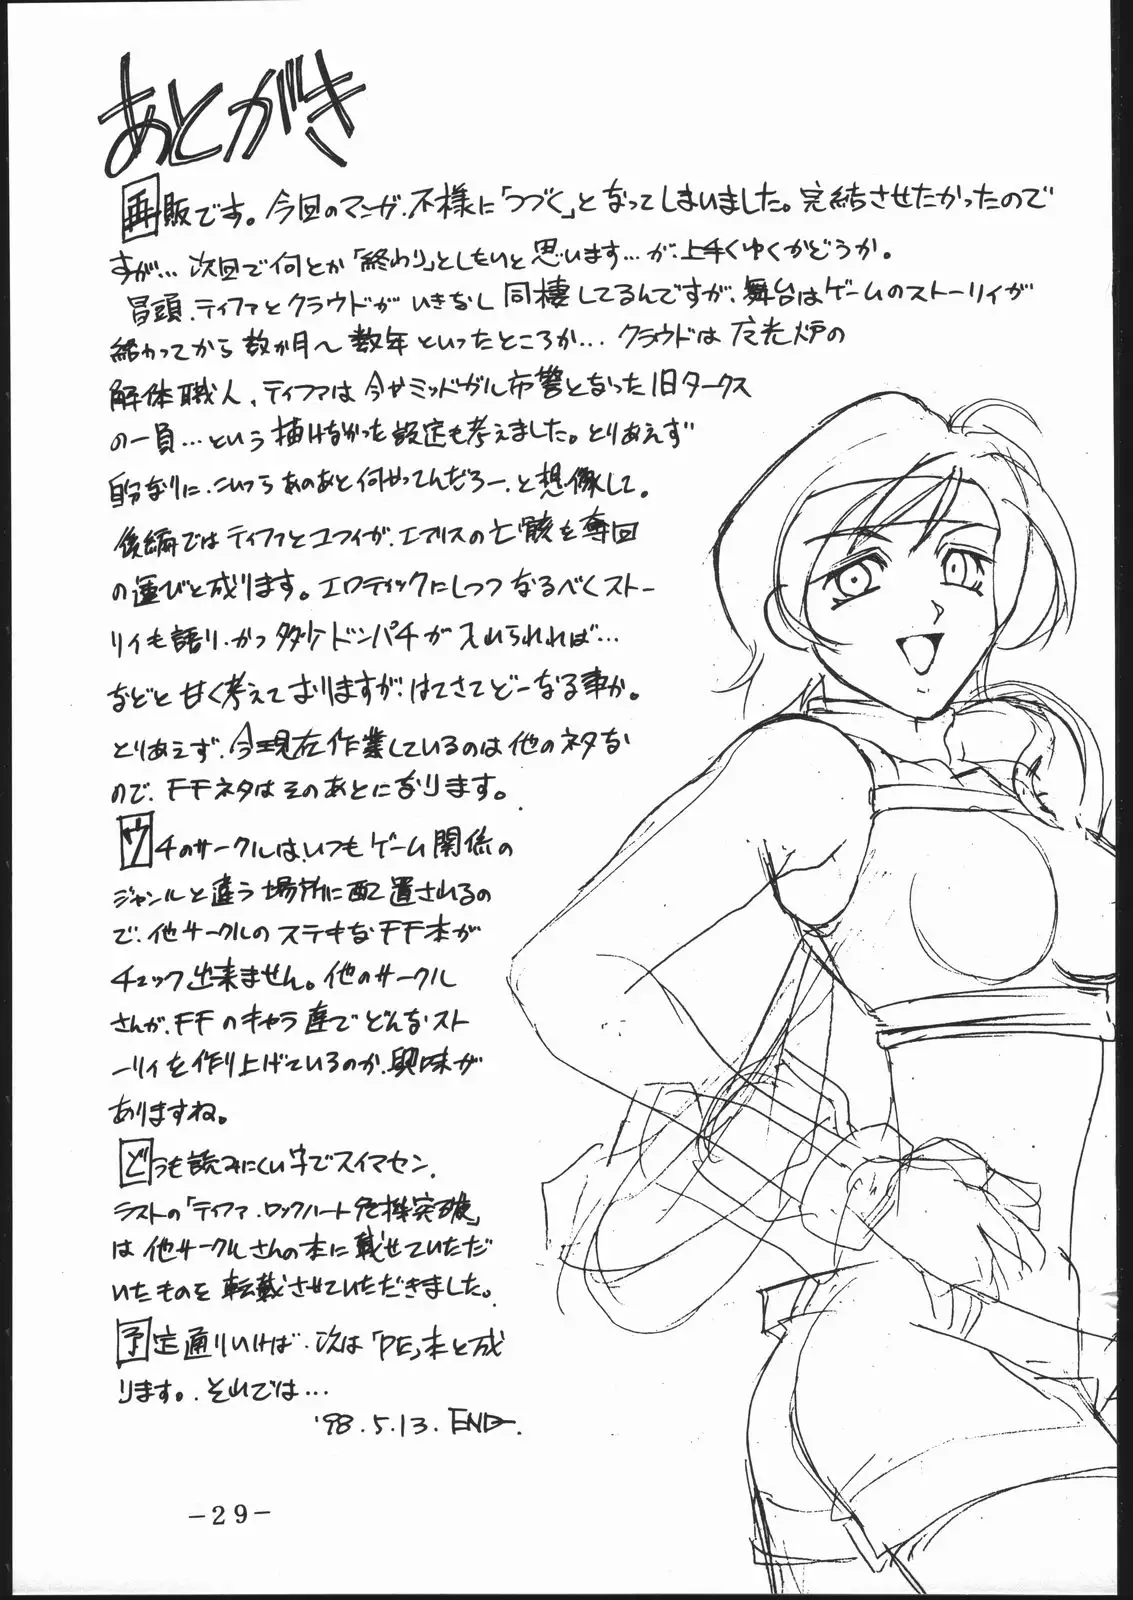 あとがき
再販です。今回のマンガ、不様に「つづく」となってしまいました。完結させたかったので
すが…次回で何とか「終わり」としたいと思います…が、上手くゆくかどうか。
冒頭、ティファとクラウドがいきなし同棲してるんですが、舞台はゲームのストーリィが
終わってから数か月〜数年といったところか…クラウドは魔光炉の
解体職人、ティファは今やミッドガル市警となった旧タークス
の一員…という描けなかった設定も考えました。とりあえず
自分なりに、こいつらあのあと何やってんだろー、と想像して。
後編ではティファとユフィが、エアリスの亡骸を奪回
の運びと成ります。エロティックにしつつなるべくストー
リィも語り、かつタダケドンパチが入れられれば…
などと甘く考えておりますが、はてさてどーなる事か。
とりあえず、今現在作業しているのは他のネタな
ので、FFネタはそのあとになります。
ウチのサークルは、いつもゲーム関係の
ジャンルと違う場所に配置されるの
で、他サークルのステキなFF本が
チェック出来ません。他のサークル
さんが、FFのキャラ達でどんなスト
ーリィを作り上げているのか、興味が
ありますね。
どうも読みにくい字でスイマセン。
ラストの「ティファ・ロックハート危機突破」
は他サークルさんの本に載せていただ
いたものを転載させていただきました。
予定通りいけば、次は「PE」本と成
ります。それでは…
'98.5.13. END.
-29-